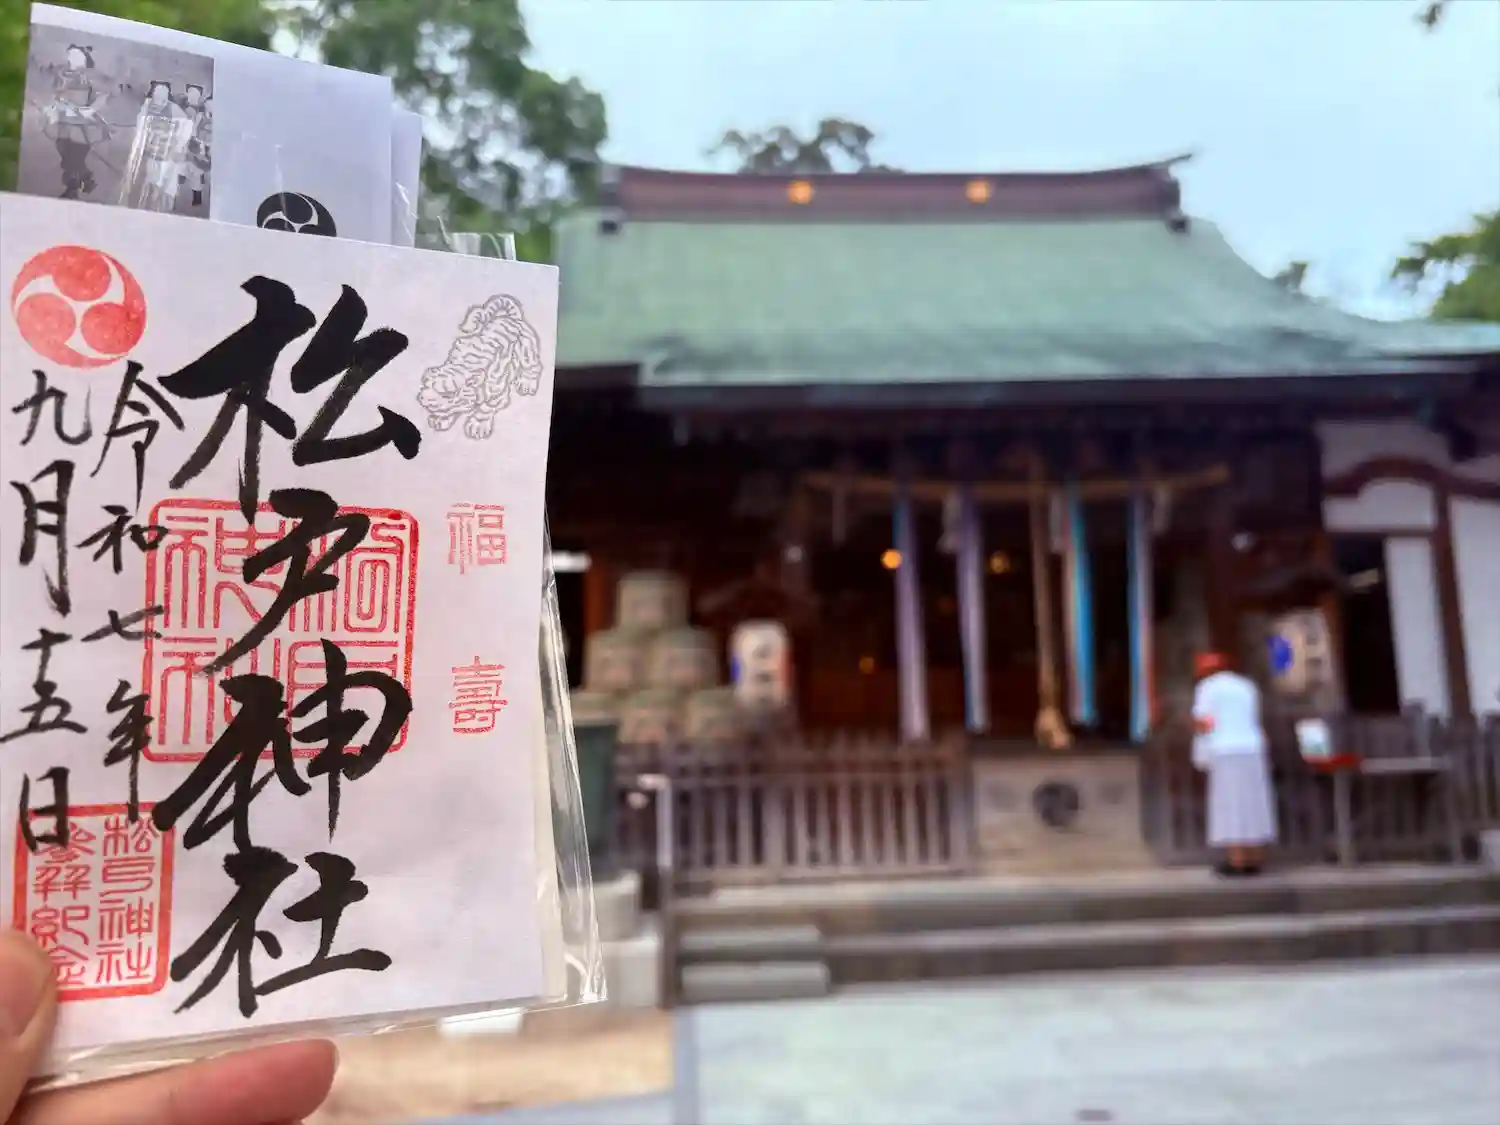 福寿
松戸神社
松戸神社
令和七年
九月十五日
松戸神社
参拝紀念